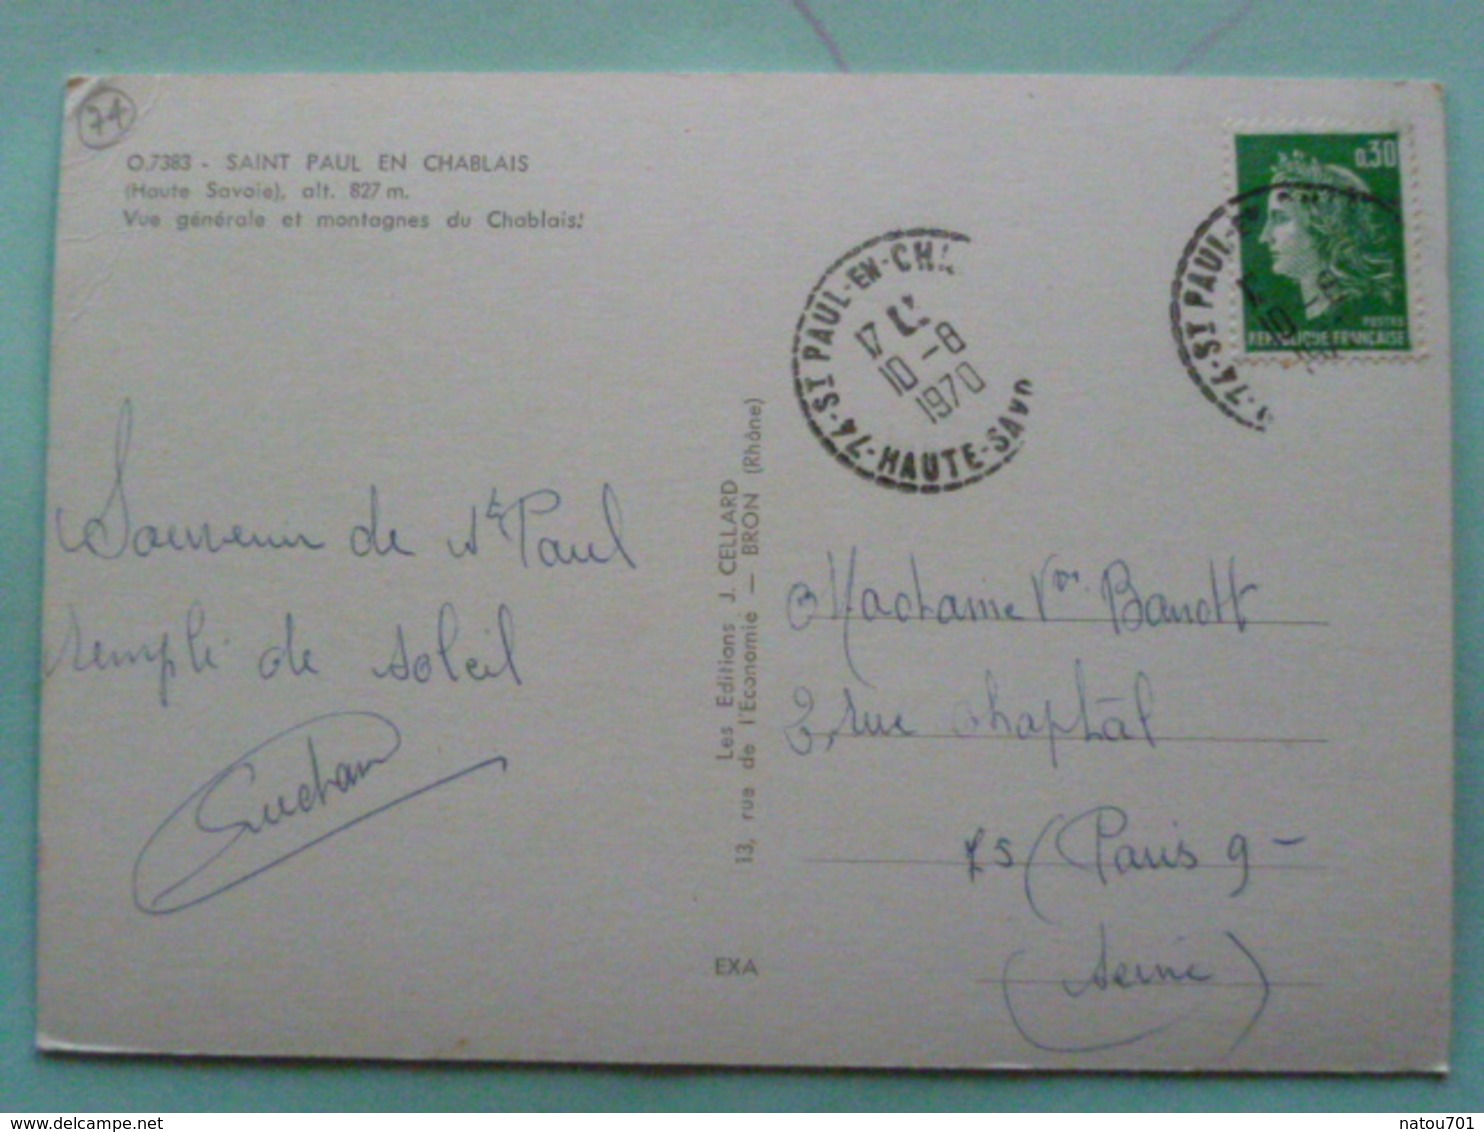 74
O.7383 - SAINT PAUL EN CHABLAIS
(Haute Savoie), alt. 827 m.
Vue générale et montagnes du Chablais.
Souvenir de St Paul
rempli de soleil
Les Editions J. CELLARD
13, rue de l'Economie — BRON (Rhône)
EXA
ST PAUL-EN-CH
17
10-8
1970
74-HAUTE-SAVO
0.30
POSTES
REPUBLIQUE FRANÇAISE
ST PAUL-EN
10-8
74
Madame Vve
2, rue Chaptal
75 (Paris 9-
(Seine)
natou701